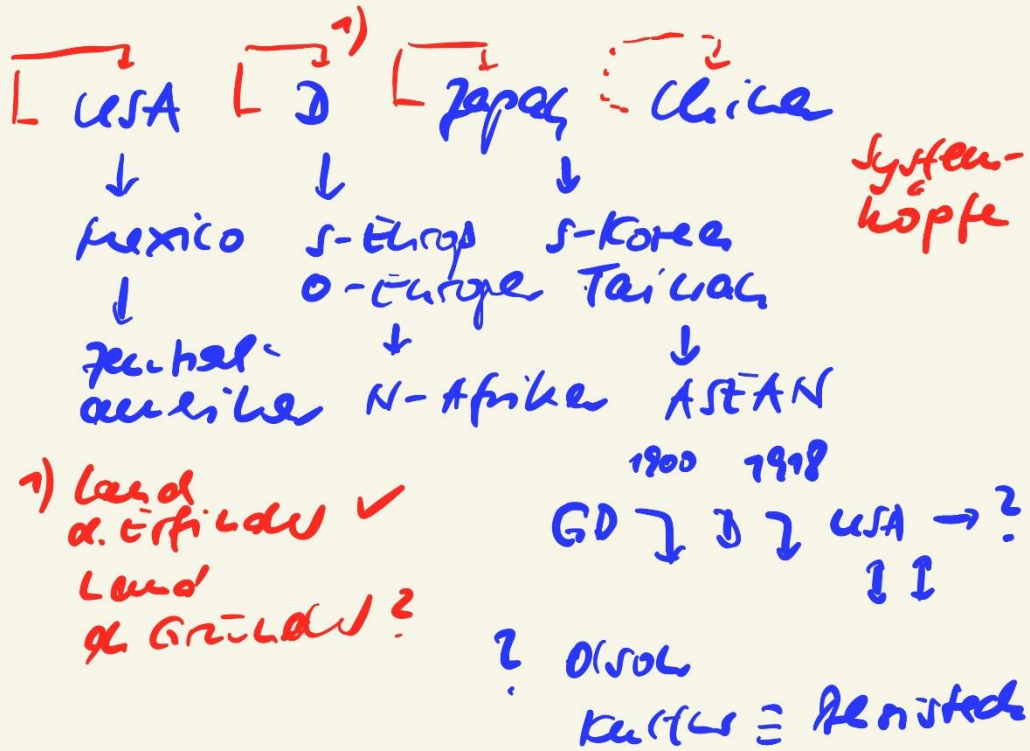 1)
USA D Japan China
System-
köpfe
Mexico S-Europ S-Korea
O-Europa Taiwan
Zentral-
amerika N-Afrika ASEAN
1900 1918
1) Land
d. Erfinder ✓
GD D USA → ?
Land
d. Gründer?
? Olson
Kultur ≡